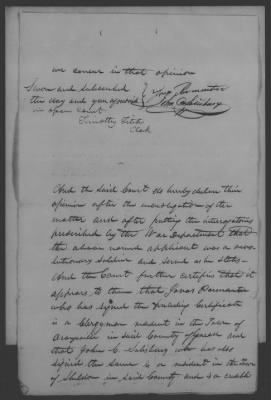 we concur in that opinion
Sworn and subscribed
this day and year aforesaid
in open court
Timothy Fitch
Clerk
And the said Court do hereby declare their
opinion after the investigation of the
matter and after putting the interrogatories
prescribed by the War Department that
the above named applicant was a revo-
lutionary soldier and served as he states—
And the Court further certifies that it
appears to them that Jonas Parmenter
who has signed the preceding Certificate
is a Clergyman resident in the Town of
in said County aforesaid and
that John C. Salisbury who has also
signed the same is a resident in the town
of Sheldon in said County and is a credi